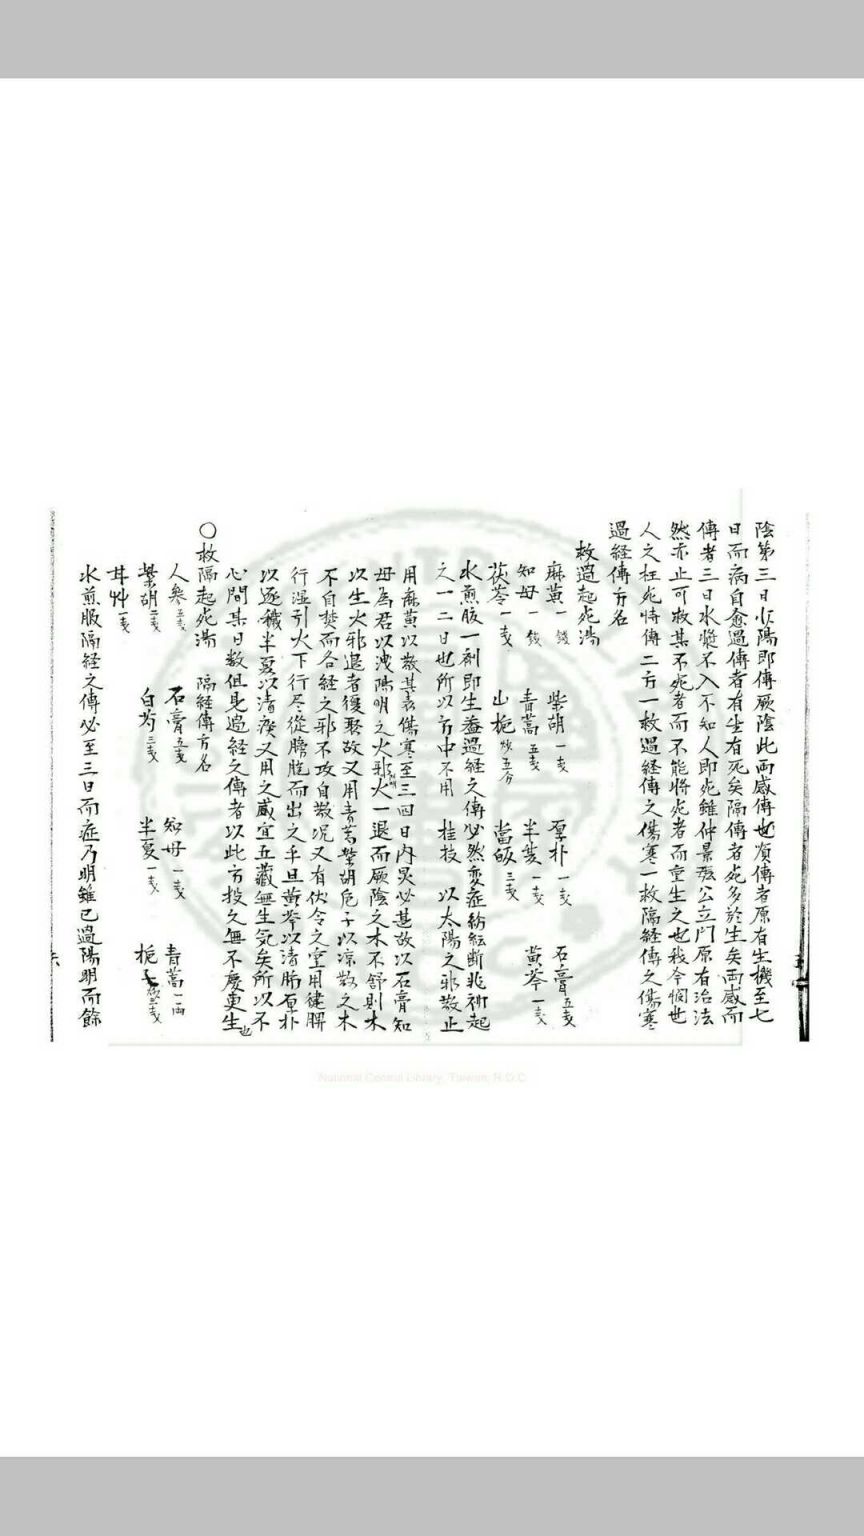 陰第三日少陽即傳厥陰此兩感傳也順傳者原有生機至七
日而病自愈過傳者有生有死矣隔傳者死多於生矣兩感而
傳者三日水漿不入不知人即死雖仲景張公立門原有治法
然亦止可救其不死者而不能將死者而重生之也我今憫世
人之枉死特傳二方一救過經傳之傷寒一救隔經傳之傷寒
過經傳方名
救過起死湯
麻黄一錢 柴胡一戋 厚朴一戋 石膏五戋
知母一錢 青蒿五戋 半夏一戋 黄芩一戋
茯苓一戋 山梔炒五分 當皈三戋
水煎服一剂即生盖過經之傳必然变症紛紜断非初起
之一二日也所以方中不用 桂枝 以太陽之邪散止
用麻黄以散其表傷寒至三四日内炅必甚故以石膏知
母為君以洩陽明之火邪火一退而厥陰之木不舒則木
以生火邪退者復聚故又用青蒿柴胡危子以凉散之木
不自焚而各經之邪不攻自散况又有伏令之室用健脾
行湿引火下行尽從膀胱而出之乎且黄芩以清肺厚朴
以逐穢半夏以清痰又用之咸宜五藏無生気矣所以不
心問其日数但見過經之傳者以此方投之無不慶更生也
〇救隔起死湯 隔經傳方名
人參五戋 石膏五戋 知母一戋 青蒿一両
柴胡二戋 白芍三戋 半夏一戋 梔子炒三戋
甘艸一戋
水煎服隔經之傳必至三日而症乃明雖已過陽明而餘
National Central Library, Taiwan, R.O.C